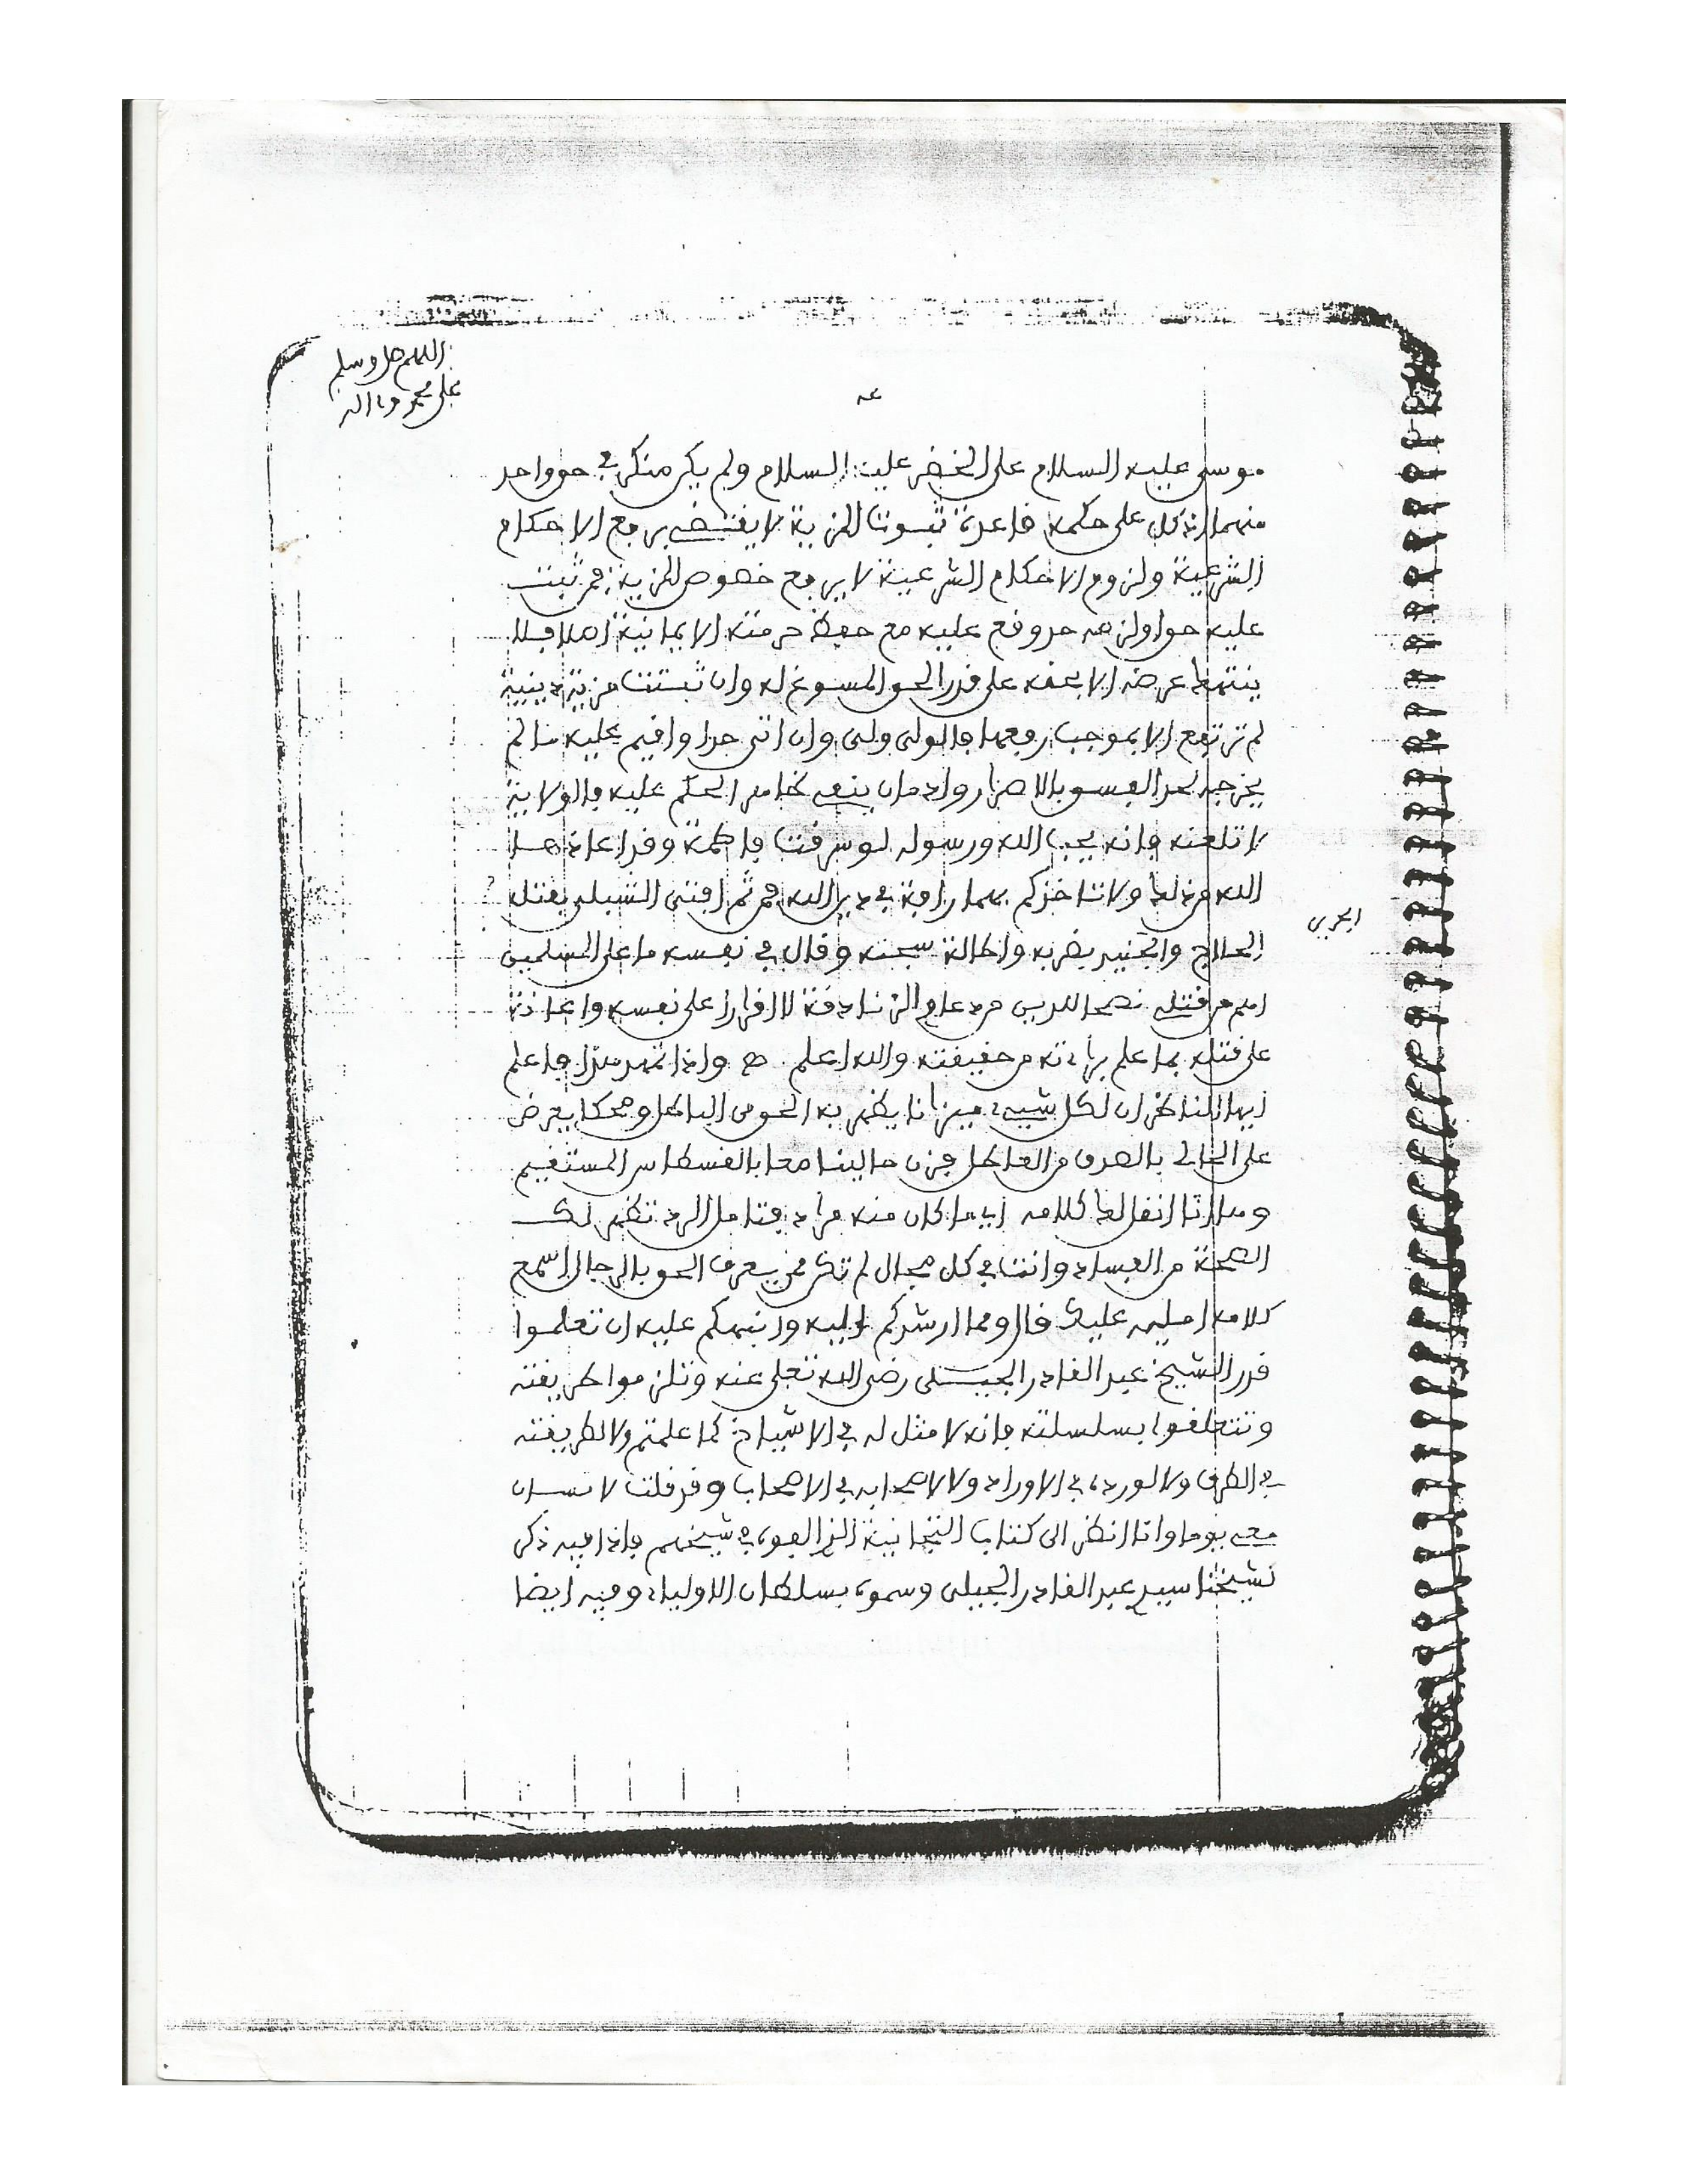 اللهم صل وسلم
على محمد وءاله
موسى عليه السلام على الخضر عليه السلام ولم يكن منكر في حق واحد
منهما اذ كل على حكمه قاعدة ثبوت المزية لا يقتضي رفع الاحكام
الشرعية ولزوم الاحكام الشرعية لا يرفع خصوص المزية فمن ثبت
عليه حق او لزمه حد وقع عليه مع حفظ حرمته الايمانية اصلا فلا
ينتهك عرضه الا بحقه على قدر الحق المسوغ له وان ثبتت مزية دينية
لم ترتفع الا بموجب رفعها فالولي ولي وان اتى حدا واقيم عليه ما لم
يخرجه لحد الفسق بالاصرار وادمان ينفي ظاهر الحكم عليه بالولاية
لا تلعنه فانه يحب الله ورسوله لو سرقت فاطمة وقد اعاذها
الله من ذلك ولا تاخذكم بهما رافة في دين الله فمن ثم افتى الشبلي بقتل
الحلاج والجنيد بضربه واطالة سجنه وقال في نفسه ما على المسلمين
اهم من قتلي نصحا للدين من دعاوي الزنادقة لا اقرارا على نفسه واعانة
على قتله بما علم براءته من حقيقته والله اعلم ھ واذا تمهد هذا فاعلم
ايها الناظر ان لكل شيء ميزانا يظهر به الحق من الباطل ومحكا يعرض
على الحالي بالصرف من العاطل فزن حالينا معا بالقسطاس المستقيم
وها انا انقل لك كلامه ايا ما كان منه فراد فتامل الرد تظهر لك
الصحة من الفساد وانت في كل مجال لم تكن ممن يعرف الحق بالرجال اسمع
كلامه امليه عليك قال ومما ارشدكم اليه وانبهكم عليه ان تعلموا
قدر الشيخ عبد القادر الجيلي رضي الله تعلى عنه وتلزموا طريقته
وتتعلقوا بسلسلته فانه لا مثل له في الاشياخ كما علمتم ولا لطريقته
في الطرق ولا لورده في الاوراد ولا لاصحابه في الاصحاب وقد قلت لانسان
معي يوما وانا انظر الى كتاب التجانية الذي الفوه في شيخهم فاذا فيه ذكر
شيخنا سيدي عبد القادر الجيلي وسموه بسلطان الاولياء وفيه ايضا